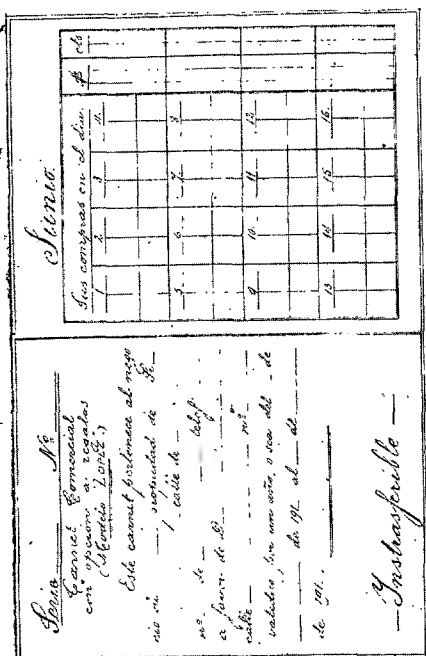 Serie Nº
Carnet Comercial
con opcion a regalos
(Modelo LOPEZ)
Este carnet pertenece al nego
cio nº propiedad de Dº
calle de
nº de telef.
a favor de Dº
calle nº
valedero por un año, o sea del de
de 191 al de
de 191.
Instrasferible
Junio.
Sus compras en el dia. $ cts
1 2 3 4
5 6 7 8
9 10 11 12
13 14 15 16